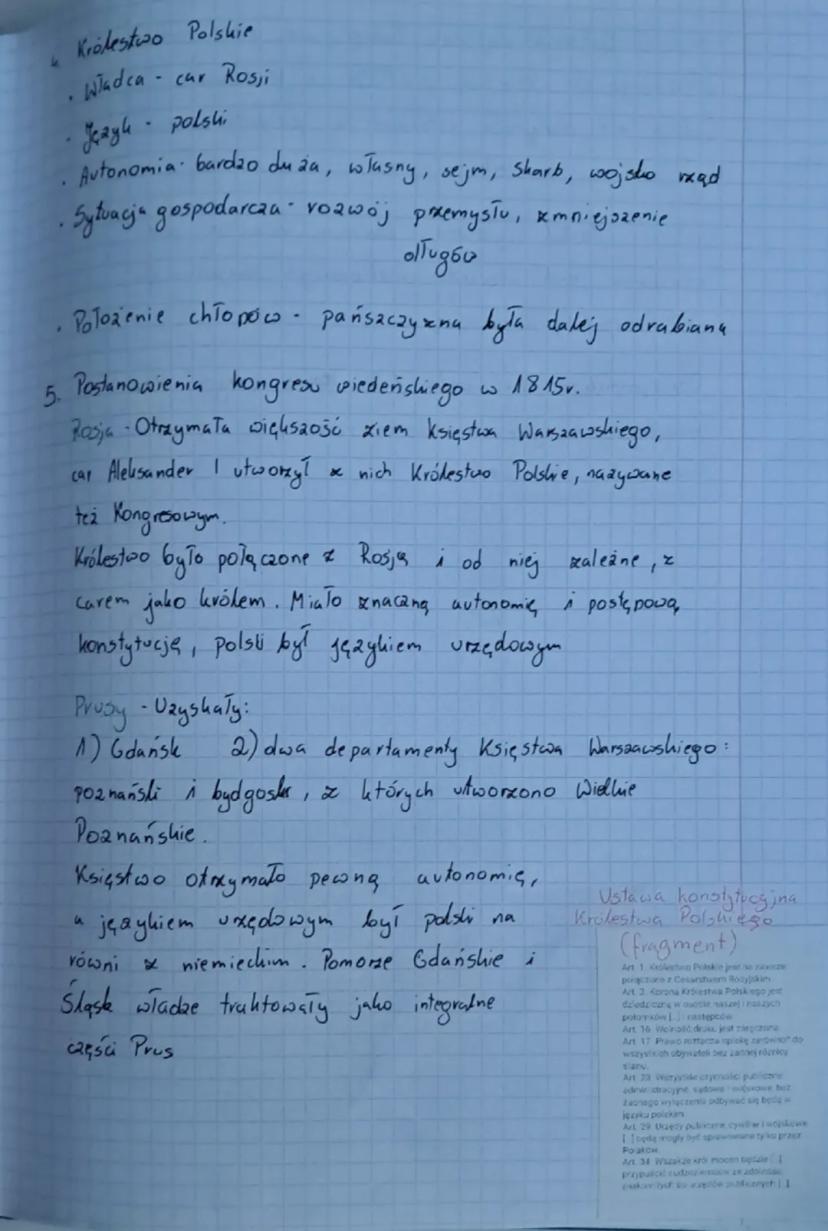 4. Królestwo Polskie
• Władca - car Rosji
• Język - polski
• Autonomia - bardzo duża, własny, sejm, skarb, wojsko rząd
• Sytuacja gospodarcza - rozwój przemysłu, zmniejszenie
długów
• Położenie chłopów - pańszczyzna była dalej odrabiana
5. Postanowienia kongresu wiedeńskiego w 1815r.
Rosja - Otrzymała większość ziem Księstwa Warszawskiego,
car Aleksander I utworzył z nich Królestwo Polskie, nazywane
też Kongresowym.
Królestwo było połączone z Rosją i od niej zależne, z
carem jako królem. Miało znaczną autonomię i postępową
konstytucję, polski był językiem urzędowym
Prusy - Uzyskały:
1) Gdańsk 2) dwa departamenty Księstwa Warszawskiego:
poznański i bydgoski, z których utworzono Wielkie
Poznańskie.
Księstwo otrzymało pewną autonomię,
a językiem urzędowym był polski na
równi z niemieckim. Pomorze Gdańskie i
Śląsk władze traktowały jako integralne
części Prus
Ustawa konstytucyjna
Królestwa Polskiego
(fragment)
Art. 1. Królestwo Polskie jest na zawsze
połączone z Cesarstwem Rosyjskim
Art. 3. Korona Królestwa Polskiego jest
dziedziczną w osobie naszej i naszych
potomków [...] i następców
Art. 16. Wolność druku jest zaręczona
Art. 17. Prawo roztacza opiekę zarówno do
wszystkich obywateli bez żadnej różnicy
stanu.
Art. 28. Wszystkie czynności publiczne
administracyjne, sądowe i wojskowe, bez
żadnego wyłączenia odbywać się będą w
języku polskim
Art. 29. Urzędy publiczne, cywilne i wojskowe
[...] będą mogły być sprawowane tylko przez
Polaków
Art. 34. Wszakże król mocen będzie [...]
przypuścić cudzoziemców ze zdolności
znakomitych do urzędów publicznych [...]